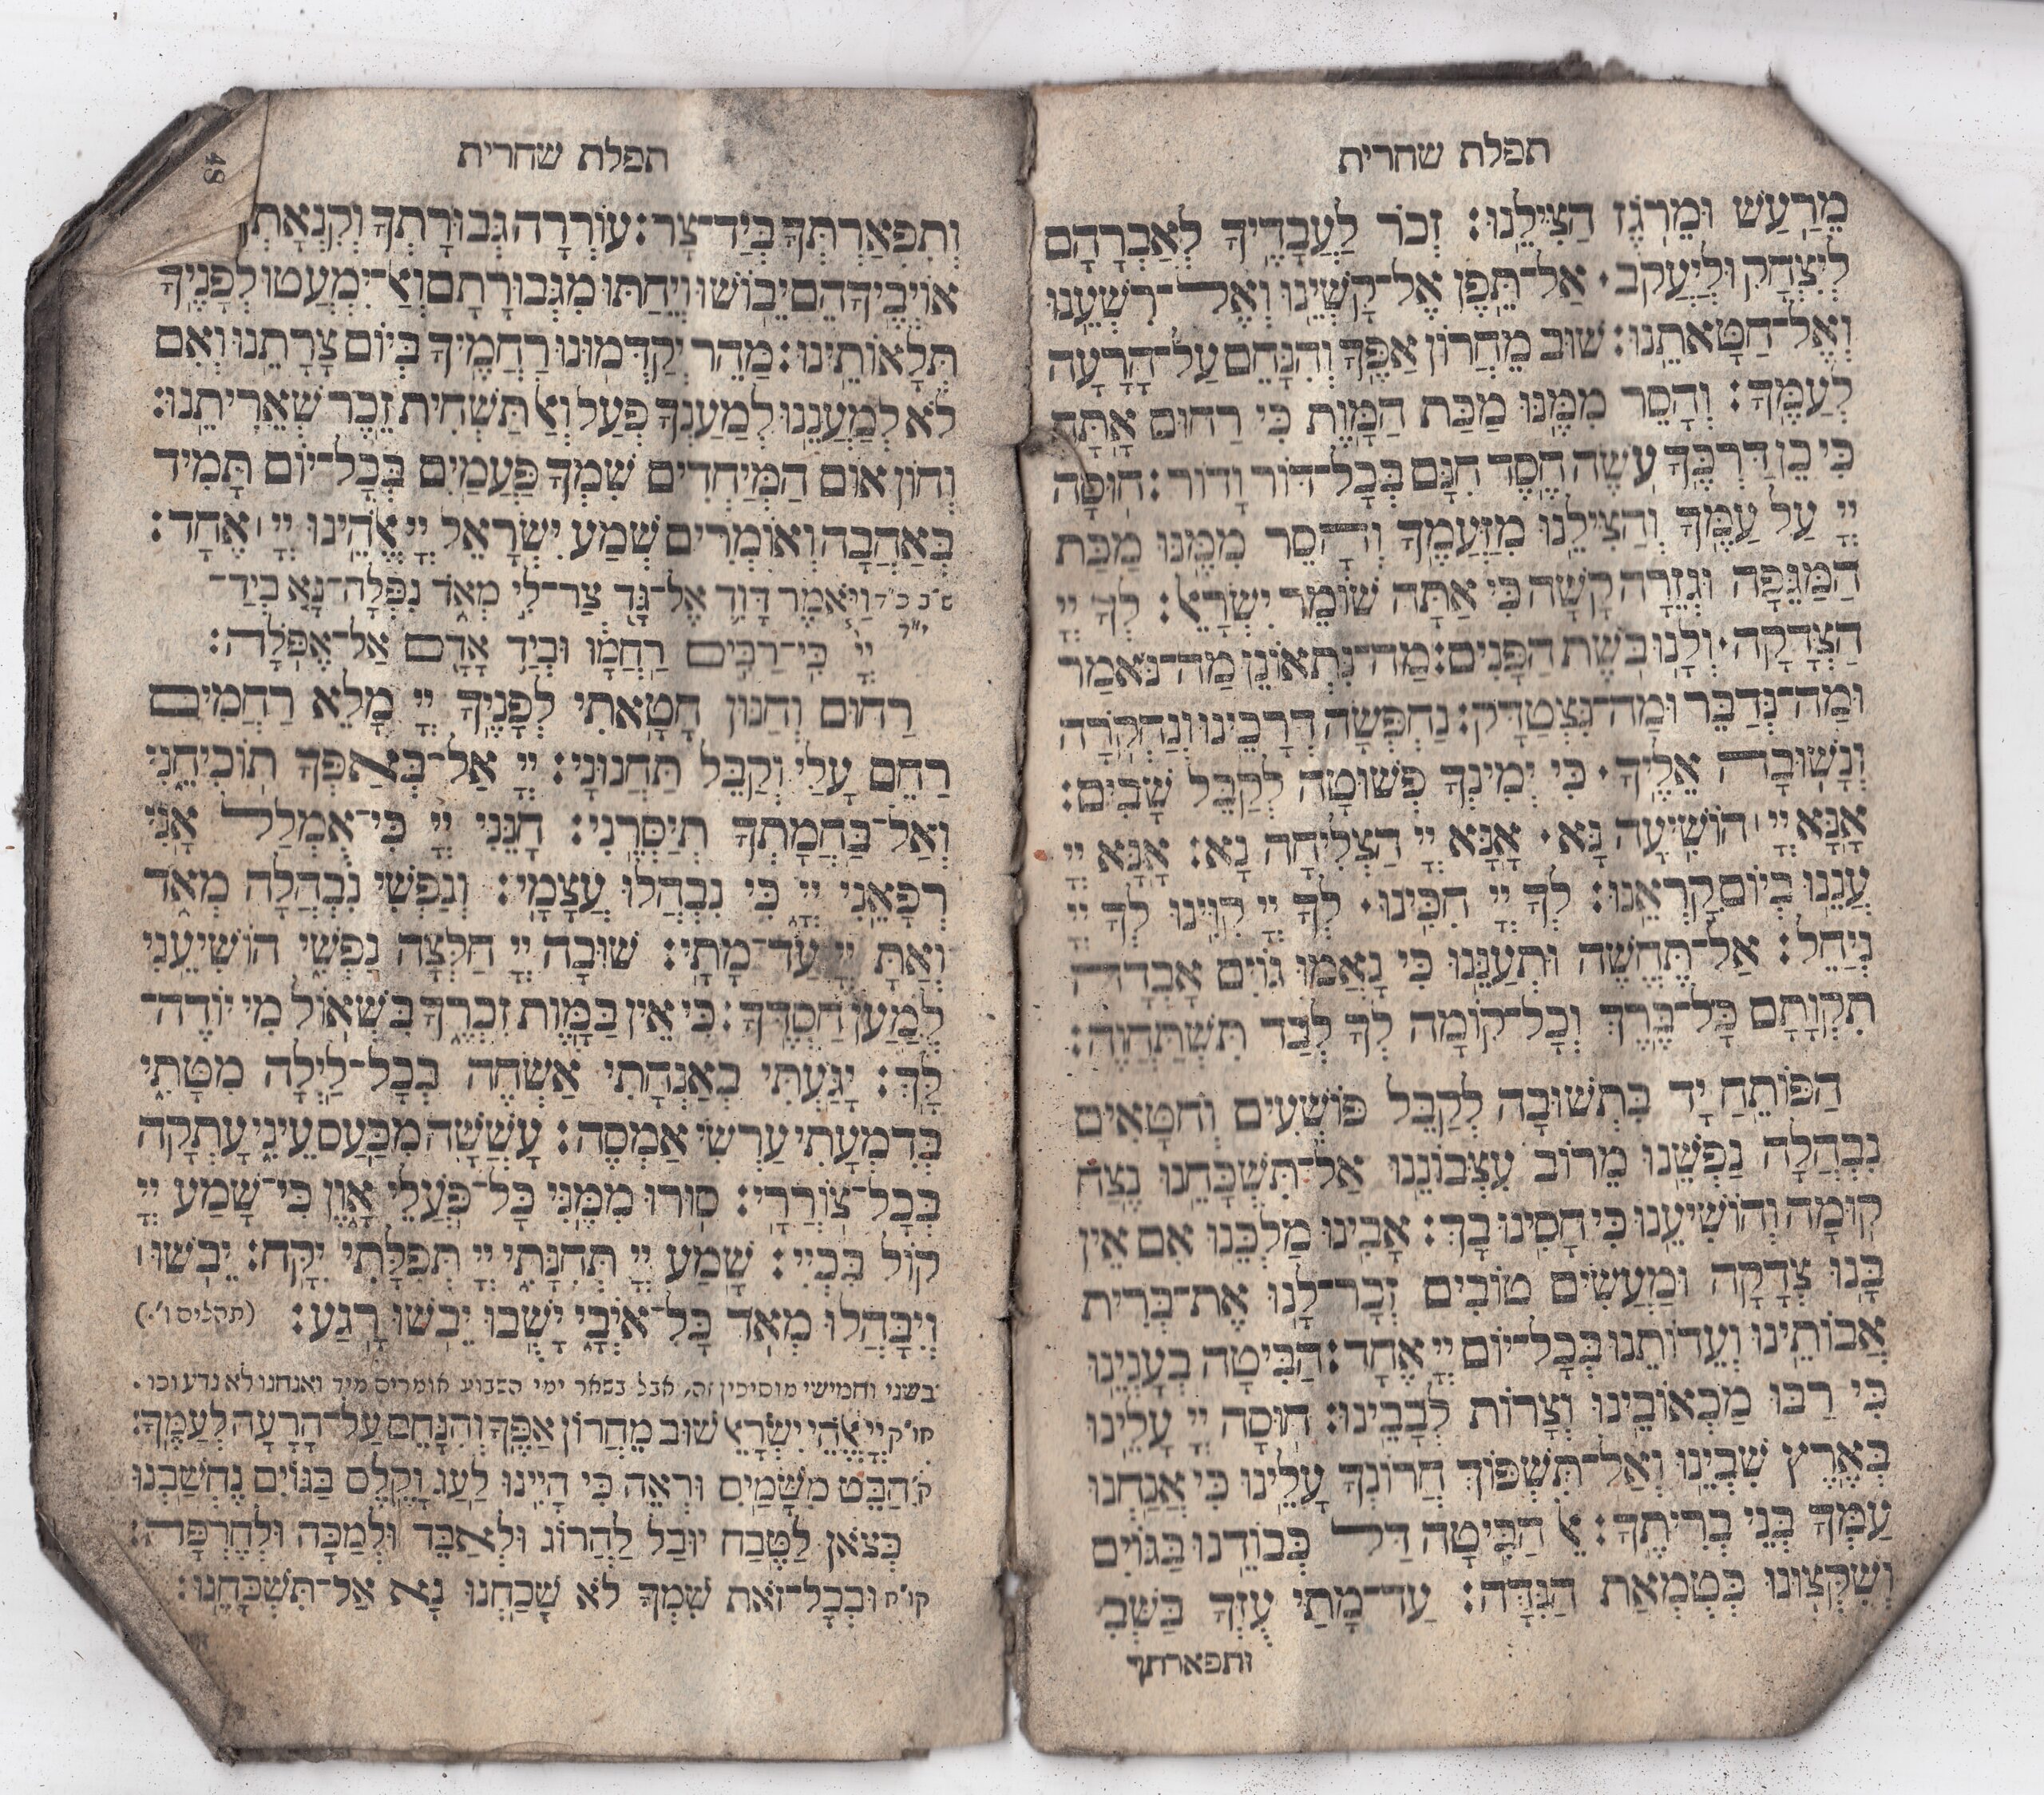 תפלת שחרית
מֵרַעַשׁ וּמֵרֹגֶז הַצִּילֵנוּ: זְכֹר לַעֲבָדֶיךָ לְאַבְרָהָם
לְיִצְחָק וּלְיַעֲקֹב· אַל־תֵּפֶן אֶל־קָשְׁיֵנוּ וְאֶל־רִשְׁעֵנוּ
וְאֶל־חַטָּאתֵנוּ: שׁוּב מֵחֲרוֹן אַפֶּךָ וְהִנָּחֵם עַל־הָרָעָה
לְעַמֶּךָ: וְהָסֵר מִמֶּנּוּ מַכַּת הַמָּוֶת כִּי רַחוּם אָתָּה
כִּי כֵן דַּרְכֶּךָ עֹשֶׂה חֶסֶד חִנָּם בְּכָל־דּוֹר וָדוֹר: חוּסָה
יְיָ עַל עַמֶּךָ וְהַצִּילֵנוּ מִזַּעְמֶךָ וְהָסֵר מִמֶּנּוּ מַכַּת
הַמַּגֵּפָה וּגְזֵרָה קָשָׁה כִּי אַתָּה שׁוֹמֵר יִשְׂרָאֵל: לְךָ יְיָ
הַצְּדָקָה· וְלָנוּ בֹּשֶׁת הַפָּנִים: מַה־נִּתְאוֹנֵן מַה־נֹּאמַר
וּמַה־נְּדַבֵּר וּמַה־נִּצְטַדָּק: נַחְפְּשָׂה דְרָכֵינוּ וְנַחְקֹרָה
וְנָשׁוּבָה אֵלֶיךָ· כִּי יְמִינְךָ פְּשׁוּטָה לְקַבֵּל שָׁבִים:
אָנָּא יְיָ הוֹשִׁיעָה נָּא· אָנָּא יְיָ הַצְלִיחָה נָא: אָנָּא יְיָ
עֲנֵנוּ בְיוֹם קָרְאֵנוּ: לְךָ יְיָ חִכִּינוּ· לְךָ יְיָ קִוִּינוּ לְךָ יְיָ
נְיַחֵל: אַל־תֶּחֱשֶׁה וּתְעַנֵּנוּ כִּי נָאֲמוּ גוֹיִם אָבְדָה
תִקְוָתָם כָּל־בֶּרֶךְ וְכָל־קוֹמָה לְךָ לְבַד תִּשְׁתַּחֲוֶה:
הַפּוֹתֵחַ יָד בִּתְשׁוּבָה לְקַבֵּל פּוֹשְׁעִים וְחַטָּאִים
נִבְהֲלָה נַפְשֵׁנוּ מֵרוֹב עִצְּבוֹנֵנוּ אַל־תִּשְׁכָּחֵנוּ נֶצַח
קוּמָה וְהוֹשִׁיעֵנוּ כִּי חָסִינוּ בָךְ: אָבִינוּ מַלְכֵּנוּ אִם אֵין
בָּנוּ צְדָקָה וּמַעֲשִׂים טוֹבִים זְכָר־לָנוּ אֶת־בְּרִית
אֲבוֹתֵינוּ וְעֵדוֹתֵנוּ בְּכָל־יוֹם יְיָ אֶחָד: הַבִּיטָה בְעָנְיֵנוּ
כִּי רַבּוּ מַכְאוֹבֵינוּ וְצָרוֹת לְבָבֵינוּ: חוּסָה יְיָ עָלֵינוּ
בְּאֶרֶץ שִׁבְיֵנוּ וְאַל־תִּשְׁפּוֹךְ חֲרוֹנְךָ עָלֵינוּ כִּי אֲנַחְנוּ
עַמְּךָ בְּנֵי בְרִיתֶךָ: אֵל הַבִּיטָה דַּל כְּבוֹדֵנוּ בַּגּוֹיִם
וְשִׁקְּצוּנוּ כְּטֻמְאַת הַנִּדָּה: עַד־מָתַי עֻזְּךָ בַּשְּׁבִי
ותפארתך
תפלת שחרית
48
וְתִפְאַרְתְּךָ בְּיַד־צָר: עוֹרְרָה גְבוּרָתְךָ וְקִנְאָתְךָ
אוֹיְבֶיךָ הֵם יֵבוֹשׁוּ וְיֵחַתּוּ מִגְּבוּרָתָם וְאַל־יִמְעֲטוּ לְפָנֶיךָ
תְּלָאוֹתֵינוּ: מַהֵר יְקַדְּמוּנוּ רַחֲמֶיךָ בְּיוֹם צָרָתֵנוּ וְאִם
לֹא לְמַעֲנֵנוּ לְמַעַנְךָ פְּעָל וְאַל תַּשְׁחִית זֵכֶר שְׁאֵרִיתֵנוּ:
וְחוֹן אוֹם הַמְיַחֲדִים שִׁמְךָ פַּעֲמַיִם בְּכָל־יוֹם תָּמִיד
בְּאַהֲבָה וְאוֹמְרִים שְׁמַע יִשְׂרָאֵל יְיָ אֱלֹהֵינוּ יְיָ אֶחָד:
ש״ב כ״ד וַיֹּאמֶר דָּוִד אֶל־גָּד צַר־לִי מְאֹד נִפְּלָה־נָּא בְיַד־
י״ד יְיָ כִּי־רַבִּים רַחֲמָו וּבְיַד אָדָם אַל־אֶפֹּלָה:
רַחוּם וְחַנּוּן חָטָאתִי לְפָנֶיךָ יְיָ מָלֵא רַחֲמִים
רַחֵם עָלַי וְקַבֵּל תַּחֲנוּנָי: יְיָ אַל־בְּאַפְּךָ תוֹכִיחֵנִי
וְאַל־בַּחֲמָתְךָ תְיַסְּרֵנִי: חָנֵּנִי יְיָ כִּי־אֻמְלַל אָנִי
רְפָאֵנִי יְיָ כִּי נִבְהֲלוּ עֲצָמָי: וְנַפְשִׁי נִבְהֲלָה מְאֹד
וְאַתָּ יְיָ עַד־מָתָי: שׁוּבָה יְיָ חַלְּצָה נַפְשִׁי הוֹשִׁיעֵנִי
לְמַעַן חַסְדֶּךָ: כִּי אֵין בַּמָּוֶת זִכְרֶךָ בִּשְׁאוֹל מִי יוֹדֶה־
לָּךְ: יָגַעְתִּי בְאַנְחָתִי אַשְׂחֶה בְכָל־לַיְלָה מִטָּתִי
בְּדִמְעָתִי עַרְשִׂי אַמְסֶה: עָשְׁשָׁה מִכַּעַס עֵינִי עָתְקָה
בְּכָל־צוֹרְרָי: סוּרוּ מִמֶּנִּי כָּל־פֹּעֲלֵי אָוֶן כִּי־שָׁמַע יְיָ
קוֹל בִּכְיִי: שָׁמַע יְיָ תְּחִנָּתִי יְיָ תְּפִלָּתִי יִקָּח: יֵבֹשׁוּ
וְיִבָּהֲלוּ מְאֹד כָּל־אֹיְבָי יָשֻׁבוּ יֵבֹשׁוּ רָגַע: (תהלים ו׳.)
בשני וחמישי מוסיפין זה, אבל בשאר ימי השבוע אומרים מיד ואנחנו לא נדע וכו׳.
חו״ק יְיָ אֱלֹהֵי יִשְׂרָאֵל שׁוּב מֵחֲרוֹן אַפֶּךָ וְהִנָּחֵם עַל־הָרָעָה לְעַמֶּךָ:
ק׳ הַבֵּט מִשָּׁמַיִם וּרְאֵה כִּי הָיִינוּ לַעַג וָקֶלֶס בַּגּוֹיִם נֶחְשַׁבְנוּ
כְּצֹאן לַטֶּבַח יוּבָל לַהֲרוֹג וּלְאַבֵּד וּלְמַכָּה וּלְחֶרְפָּה:
קו״ח וּבְכָל־זֹאת שִׁמְךָ לֹא שָׁכָחְנוּ נָא אַל־תִּשְׁכָּחֵנוּ: